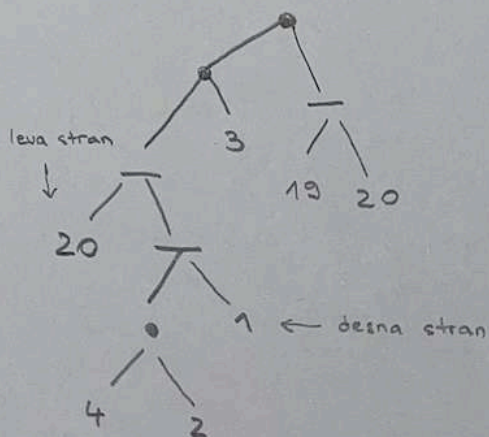 leva stran
3
19 20
20
1 ← desna stran
4
2